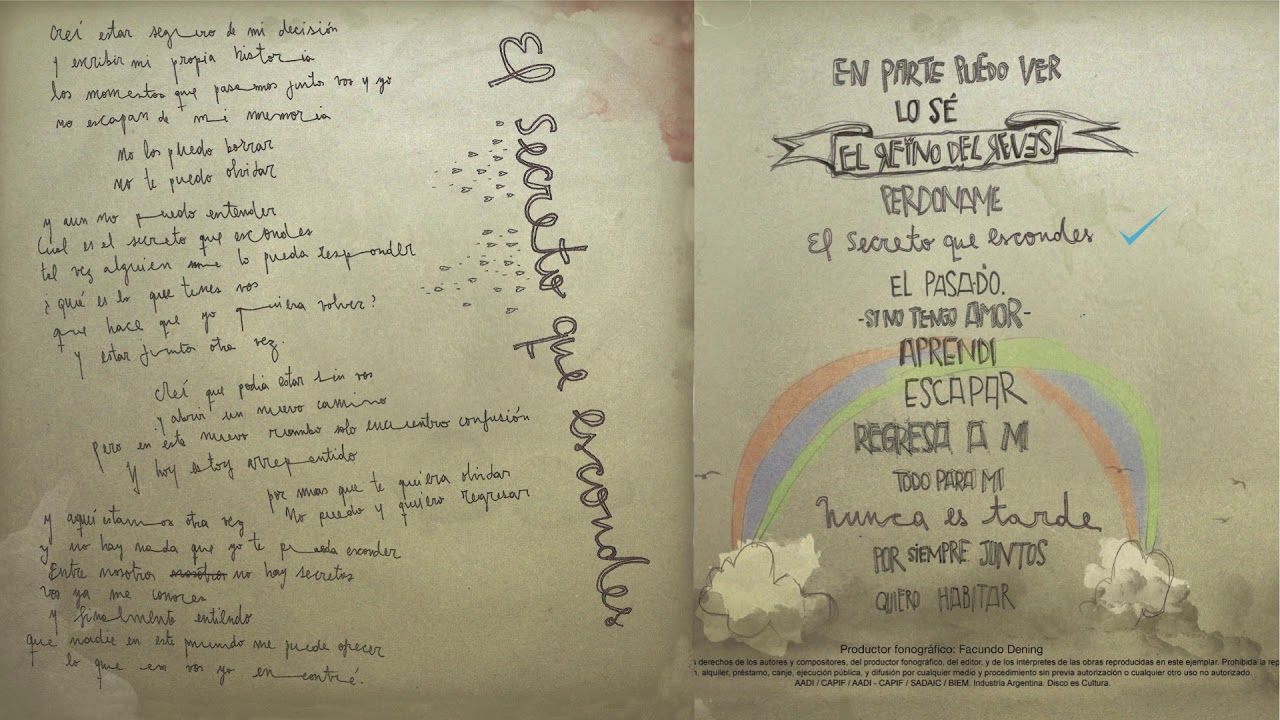 Creí estar seguro de mi decisión
y escribir mi propia historia
los momentos que pasamos juntos vos y yo
no escapan de mi memoria
No los puedo borrar
no te puedo olvidar
y aun no puedo entender
Cual es el secreto que escondes
tal vez alguien me lo pueda responder
¿qué es lo que tenes vos
que hace que yo quiera volver?
y estar juntos otra vez.
Creí que podia estar sin vos
y abrir un nuevo camino
pero en este nuevo rumbo solo encuentro confusión
Y hoy estoy arrepentido
por mas que te quiera olvidar
No puedo y quiero regresar
y aqui estamos otra vez
y no hay nada que yo te pueda esconder
Entre nosotros nosotros no hay secretos
vos ya me conoces
y finalmente entiendo
que nadie en este mundo me puede ofrecer
lo que en vos yo encontré.
El secreto que escondes
EN PARTE PUEDO VER
LO SÉ
EL REINO DEL REVES
PERDONAME
El secreto que escondes
EL PASADO.
-SI NO TENGO AMOR-
APRENDI
ESCAPAR
REGRESA A MI
TODO PARA MI
Nunca es tarde
POR SIEMPRE JUNTOS
QUIERO HABITAR
Productor fonográfico: Facundo Dening
derechos de los autores y compositores, del productor fonográfico, del editor, y de los intérpretes de las obras reproducidas en este ejemplar. Prohibida la
alquiler, préstamo, canje, ejecución pública, y difusión por cualquier medio y procedimiento sin previa autorización o cualquier otro uso no autorizado.
AADI / CAPIF / AADI - CAPIF / SADAIC / BIEM. Industria Argentina. Disco es Cultura.